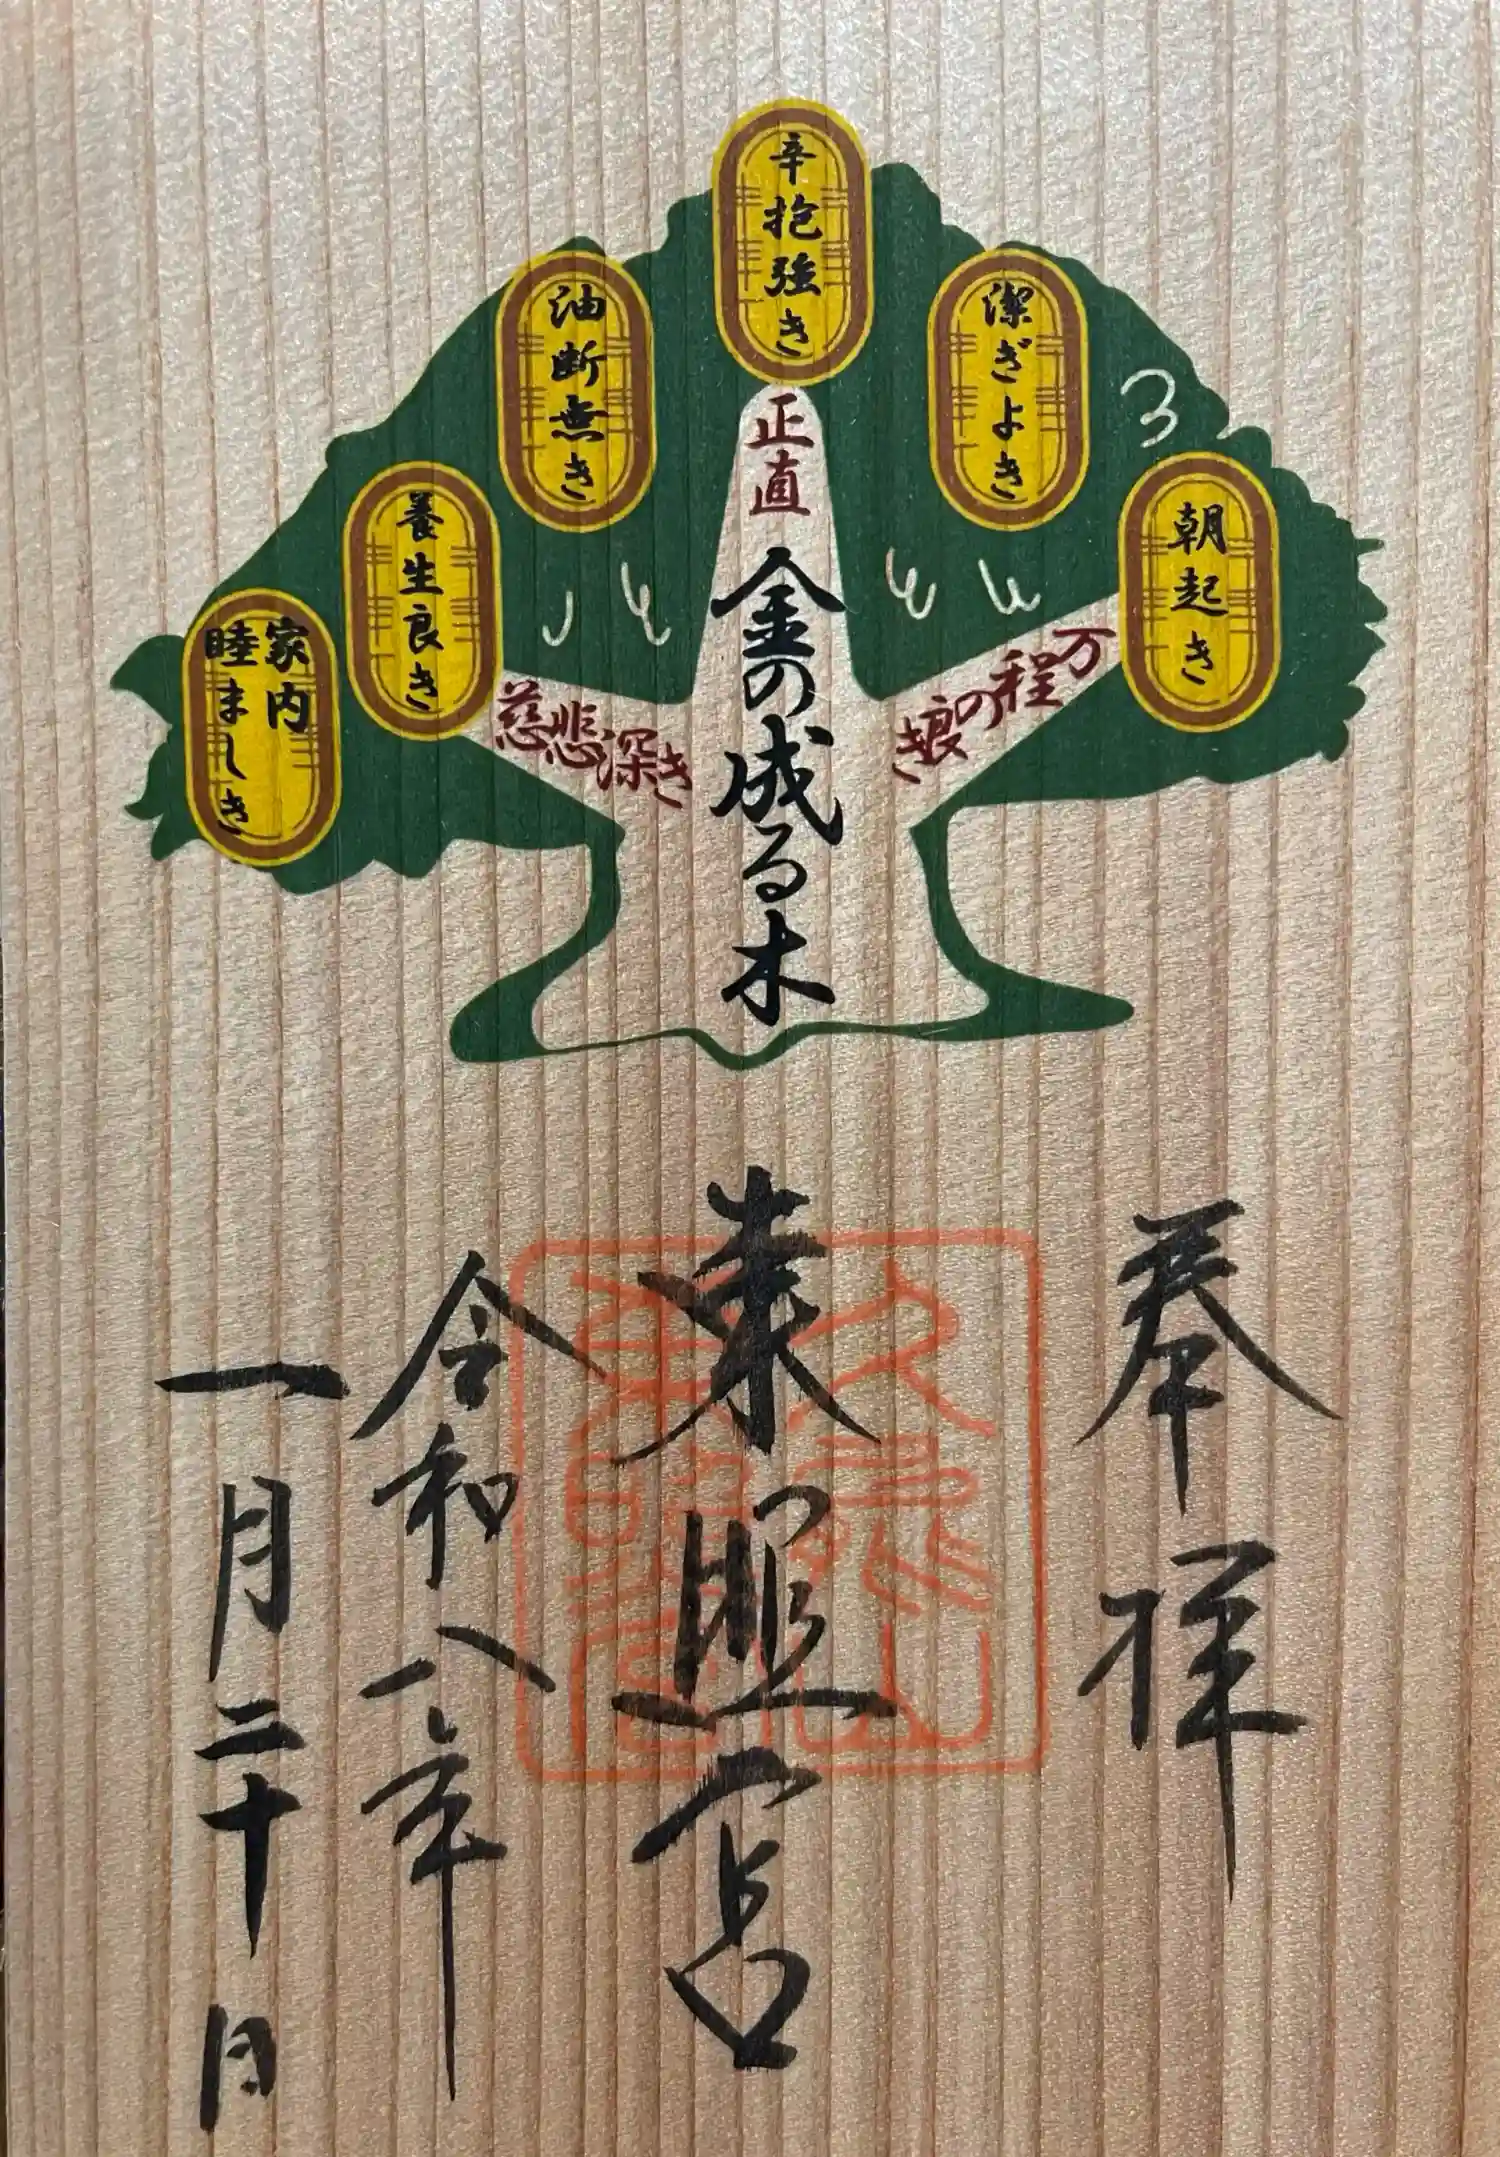 朝起き
潔ぎよき
辛抱強き
油断無き
養生良き
家内
睦ましき
万程の良き
正直
慈悲深き
金の成る木
奉拝
東照宮
令和八年
一月二十日